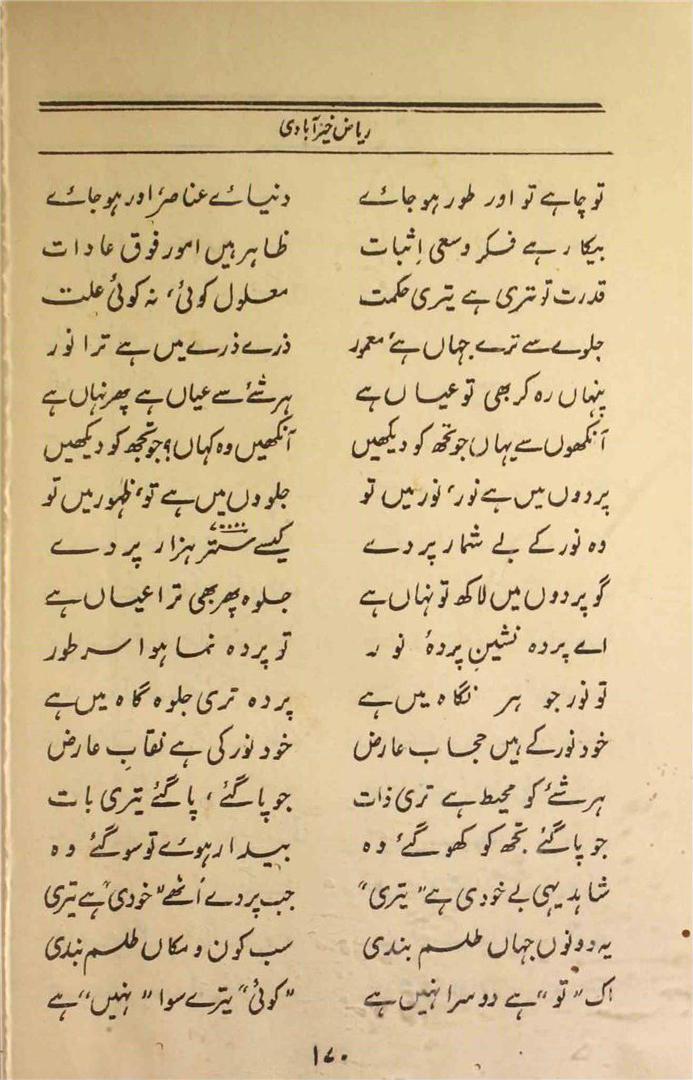 ریاض خیرآبادی
تو چاہے تو اور طور ہو جائے دنیائے عناصر اور ہو جائے
بیکار ہے فکر وسعیِ اثبات ظاہر ہیں امور فوق عادات
قدرت تو تری ہے تیری حکمت معلول کوئی، نہ کوئی علت
جلوے سے ترے جہاں ہے معمور ذرے ذرے میں ہے ترا نور
پنہاں رہ کر بھی تو عیاں ہے ہر شئے سے عیاں ہے پھر نہاں ہے
آنکھوں سے یہاں جو تجھ کو دیکھیں آنکھیں وہ کہاں؟ جو تجھ کو دیکھیں
پردوں میں ہے نور، نور میں تو جلووں میں ہے تو، ظہور میں تو
وہ نور کے بے شمار پردے کیسے ستر ہزار پردے
۷۰۰۰۰
گو پردوں میں لاکھ تو نہاں ہے جلوہ پھر بھی ترا عیاں ہے
اے پردہ نشینِ پردۂ نور تو پردہ نما ہوا سر طور
تو نور جو ہر نگاہ میں ہے پردہ تری جلوہ گاہ میں ہے
خود نور کے ہیں حجاب عارض خود نور کی ہے نقابِ عارض
ہر شئے کو محیط ہے تری ذات جو پاگئے، پاگئے تیری بات
جو پاگئے تجھ کو کھو گئے وہ بیدار ہوئے تو سو گئے وہ
شاہد یہی بے خودی ہے "تیری" جب پردے اُٹھے "خودی" ہے تیری
یہ دونوں جہاں طلسم بندی سب کون و مکاں طلسم بندی
اک "تو" ہے دوسرا نہیں ہے "کوئی" تیرے سوا "نہیں" ہے
۱۷۰